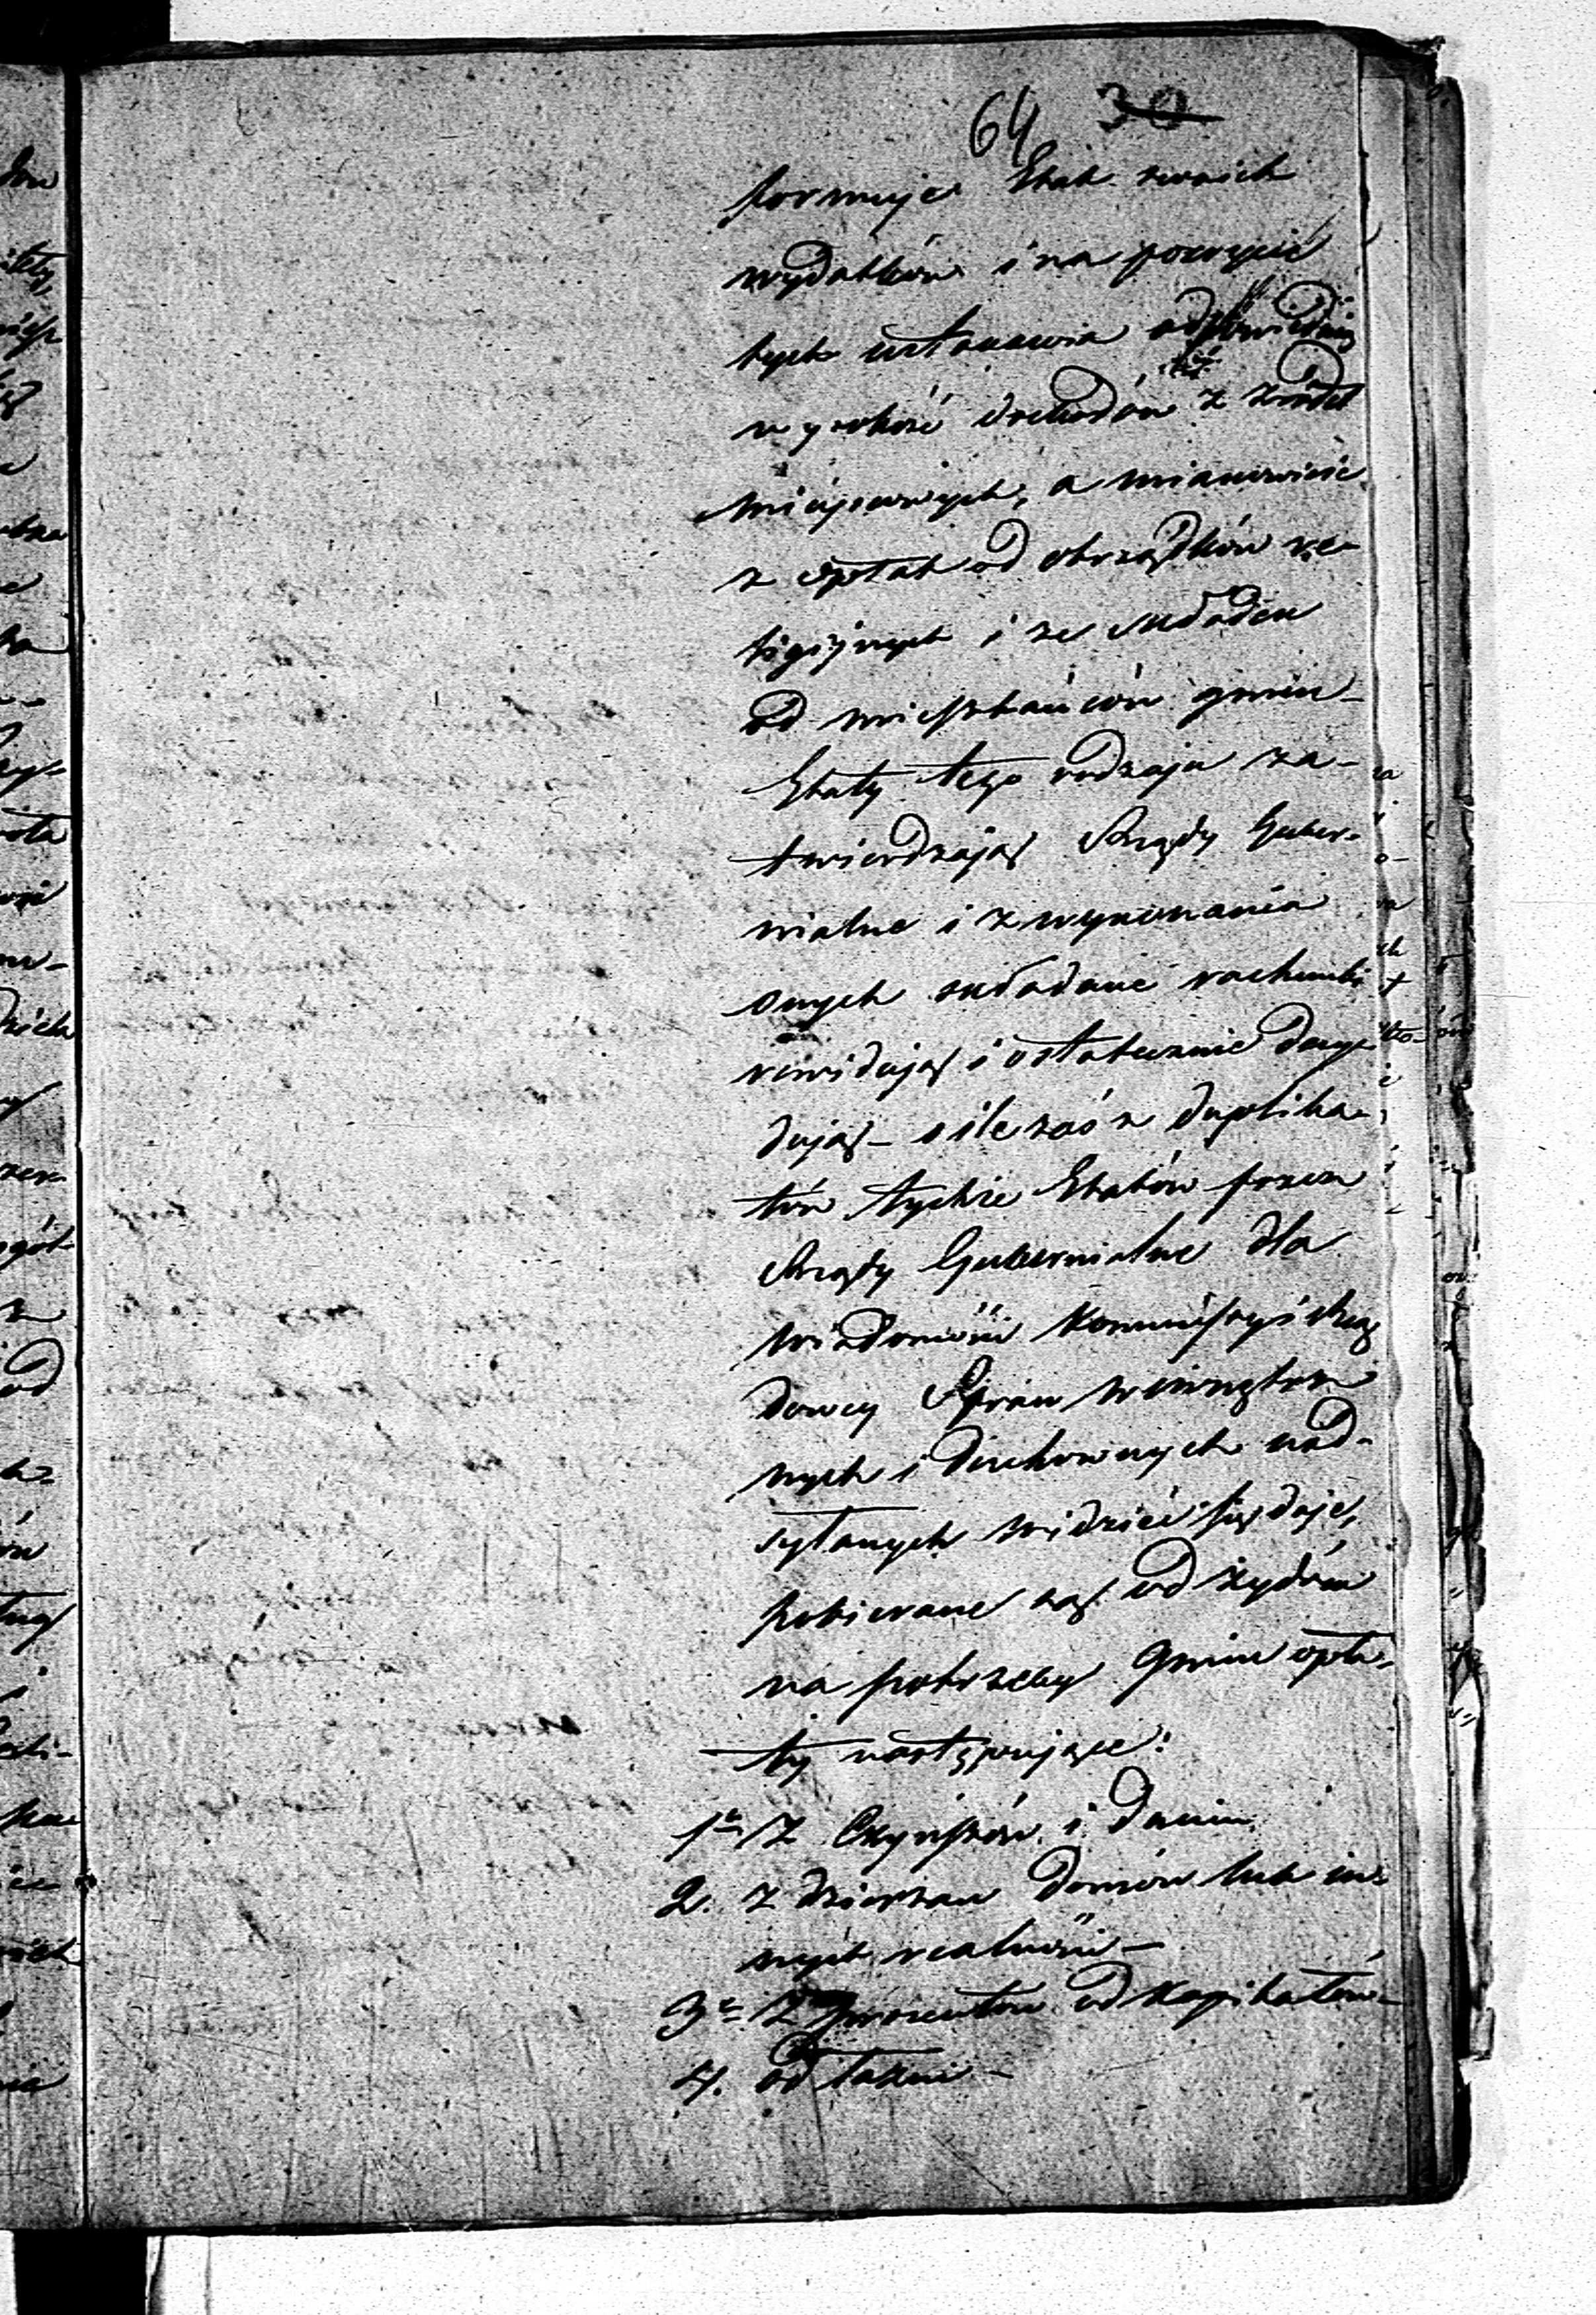 64 30
formuje Etat swoich
wydatków i na pokrycie
tych ustanawia odpowiednią
wysokość dochodów z źródeł
miejscowych, a mianowicie
z opłat od obrządków re-
ligijnych i ze składek
od mieszkańców gmin –
Etaty tego rodzaju za-
twierdzają Rządy Guber-
nialne i z wykonania
onych składane rachunki
rewidują i ostatecznie decy-
dują – o ile zaś z duplika-
tów tychże Etatów przez
Rządy Gubernialne dla
wiadomości Kommissyi Rzą
dowey Spraw Wewnętrz
nych i Duchownych nad-
syłanych widzieć się daje,
pobierane są od żydów
na potrzeby Gmin opła-
ty następujące:
1° Z Czynszów i Danin
2. z dzierżaw domów lub in-
nych realności –
3° Z procentów od kapitałów –
4. od łaźni –